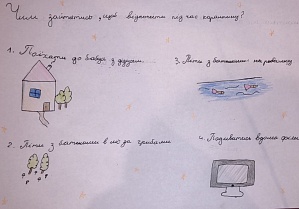 Чим зайнятись, щоб відпочити під час карантину?
1. Поїхати до бабусі з друзями...
3. Піти з батьками на риболовлю
2. Піти з батьками в ліс за грибами
4. Подивитись вдома фільм